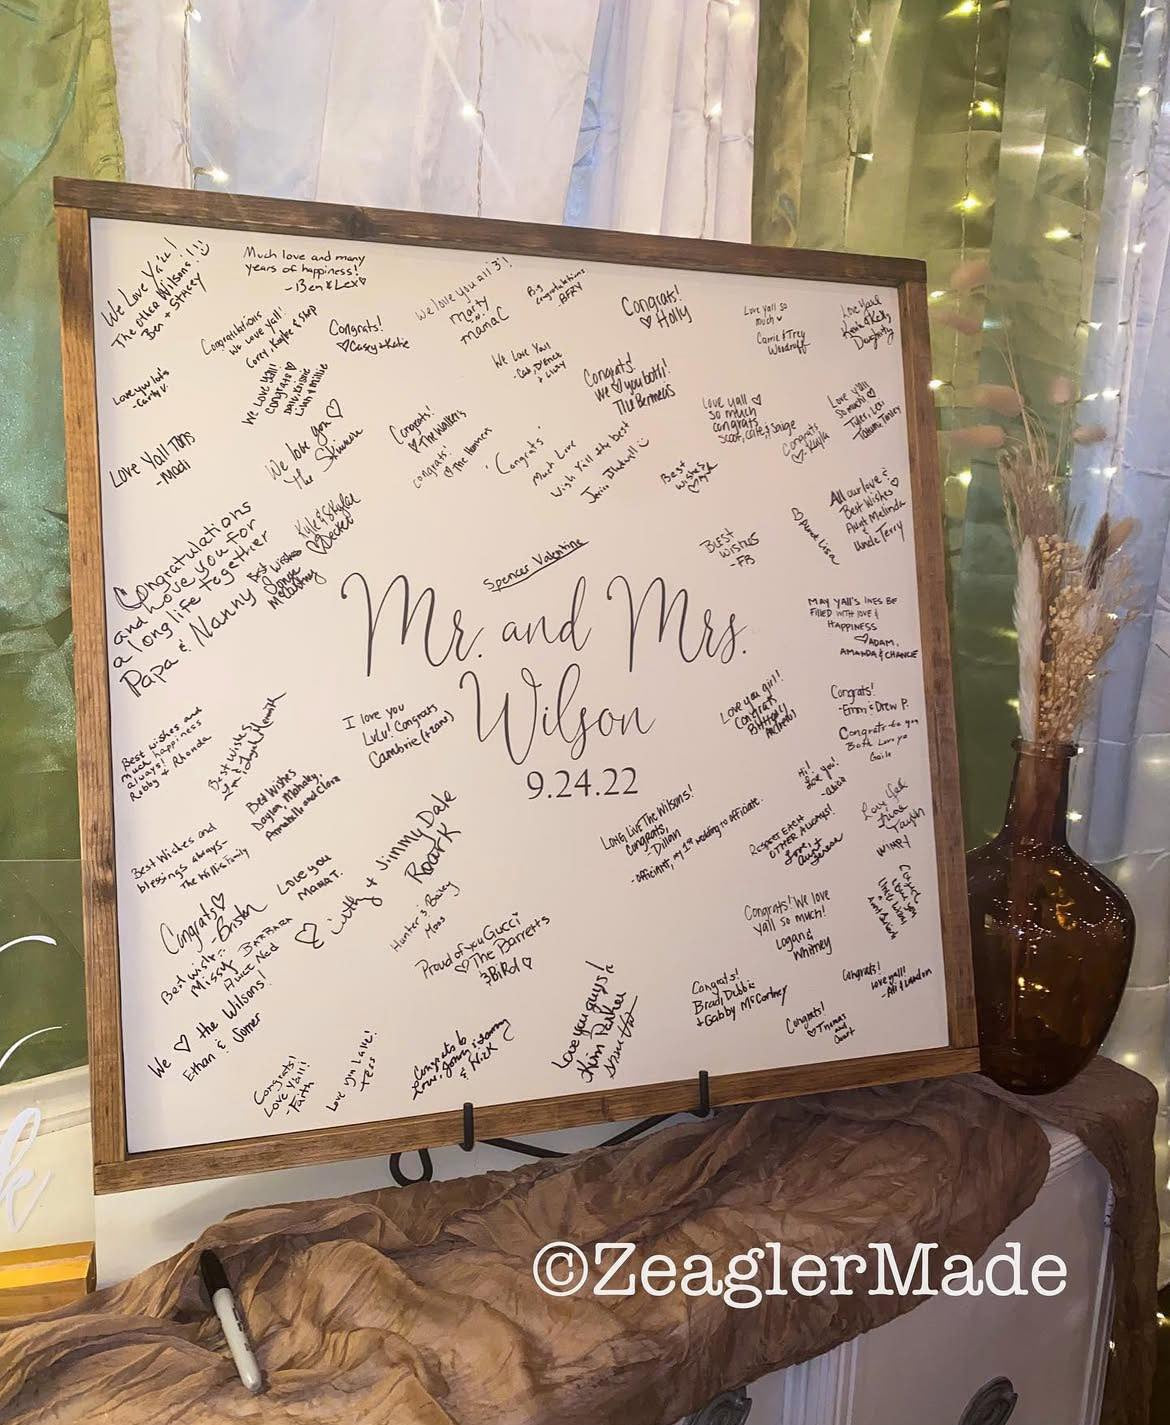 We Love Ya'll!
The other Wilsons!!!
Ben + Stacey
Much love and many
years of happiness!
-Ben & Lex♡
We love you all 3!
Marty
n'
mamaC
Big
Congratulations
-BFRY
Congrats!
♡ Holly
Love yall so
much
Carrie & Trey
Woodruff
Love you lots
-Carly V.
Congratulations
We love yall!
Corey, Kaylee & Shep
Congrats!
♡Casey & Katie
We Love Yall
We Love Yall!
Congrats ♡
Congrats!
We ♡ you both!
The Bermeas
Love yall ♡
so much
congrats
Scout, Cate, & Saige
Love y'all
so much! ♡
Tyler, Lexi
Congrats
♡-Kayla
Love Yall Tons
-Madi
We love you ♡
The
Congrats!
♡ The Walkers
congrats!
♡ The
"Congrats"
Much Love
Wish Yall the best
Best
wishes
All our love &
Best Wishes ♡
Aunt Melinda
&
Uncle Terry
Kyle & Skylar
♡ Decker
Congratulations
and Love you for
a long life together
Papa & Nanny
Best Wishes
Spencer Valentine
Best
Wishes
-FB
Mr. and Mrs.
Wilson
9.24.22
May yall's lives be
filled with love &
happiness
♡ Adam,
Amanda & Chance
Best wishes and
much happiness
always!
Robby & Rhonda
Best Wishes
I love you
Lulu! Congrats
Cambrie (+ Zane)
Love you girl!
Congrats
Congrats!
-Emm & Drew P.
Congrats to you
Both Love ya
Gaile
Best Wishes
Daylon, Mahaley,
Annabell and Clara
Hi!
Love you!
Long Live The Wilsons!
Congrats,
-Dillan
-officiant, my 1st wedding to officiate.
Respect Each
Other Always!
Love,
Aunt
Best Wishes and
blessings always-
The Willis Family
Love you
MaMa T.
♡ Witty & Jimmy Dale
Roark
Hunter & Bailey
Moss
Congrats ♡
-Briston
Best wishes
Missy
Barbara
Aunt Ned
Proud of you Gucci
♡ The Barretts
3BiRd ♡
Congrats! We love
yall so much!
Logan &
Whitney
We ♡ the Wilsons!
Ethan & Somer
Congrats!
Love Yall!
-Faith
Love you Lane!
-Tess
Congrats to
& Nick
Love you guys!
Kim Parker
Congrats!
Brad, Debbie
+ Gabby McCartney
Congrats!
♡Thomas
and
Congrats!
love yall!
-Ali & Landon
©ZeaglerMade